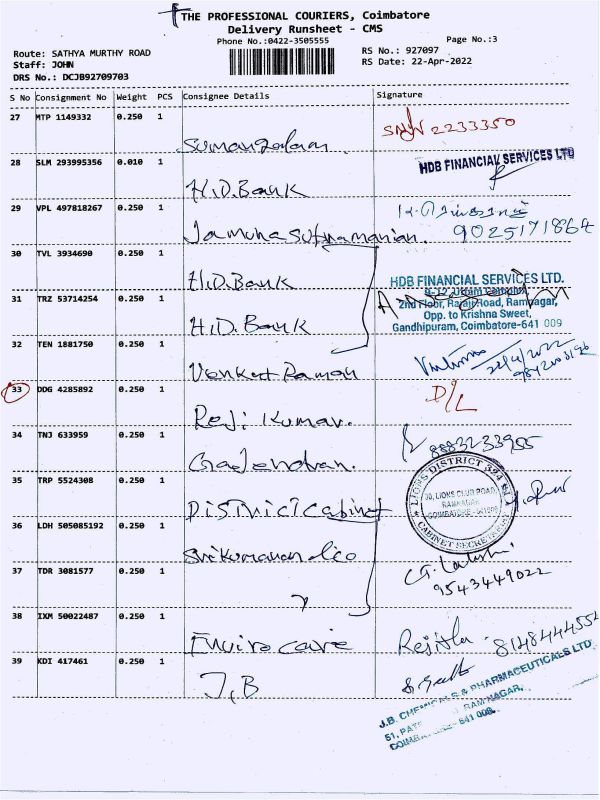 THE PROFESSIONAL COURIERS, Coimbatore
Delivery Runsheet - CMS
Phone No.:0422-3505555
Page No.:3
Route: SATHYA MURTHY ROAD
RS No.: 927097
Staff: JOHN
RS Date: 22-Apr-2022
DRS No.: DCJB92709703
S No Consignment No Weight PCS Consignee Details Signature
27 MTP 1149332 0.250 1
2233350
28 SLM 293995356 0.010 1
HDB FINANCIAL SERVICES LTD
H.D.Bank
29 VPL 497818267 0.250 1
9025171864
30 TVL 3934690 0.250 1
H.D.Bank
HDB FINANCIAL SERVICES LTD.
31 TRZ 53714254 0.250 1
2nd Floor, Rajaji Road, Ramnagar,
Opp. to Krishna Sweet,
H.D.Bank
Gandhipuram, Coimbatore-641 009
32 TEN 1881750 0.250 1
Venkat Raman
22/4/2022
33 DDG 4285892 0.250 1
D/L
Reji Kumar.
34 TNJ 633959 0.250 1
8883233955
Gajendran.
35 TRP 5524308 0.250 1
LIONS DISTRICT 324
30, LIONS CLUB ROAD,
RAMNAGAR
COIMBATORE
CABINET SECRETARIAT
District Cabinet
36 LDH 505085192 0.250 1
Srikumaran &co
37 TDR 3081577 0.250 1
9543449022
38 IXM 50022487 0.250 1
Enviro care
Rejitha
8148444554
39 KDI 417461 0.250 1
J.B
J.B. CHEMICALS & PHARMACEUTICALS LTD
RAMNAGAR,